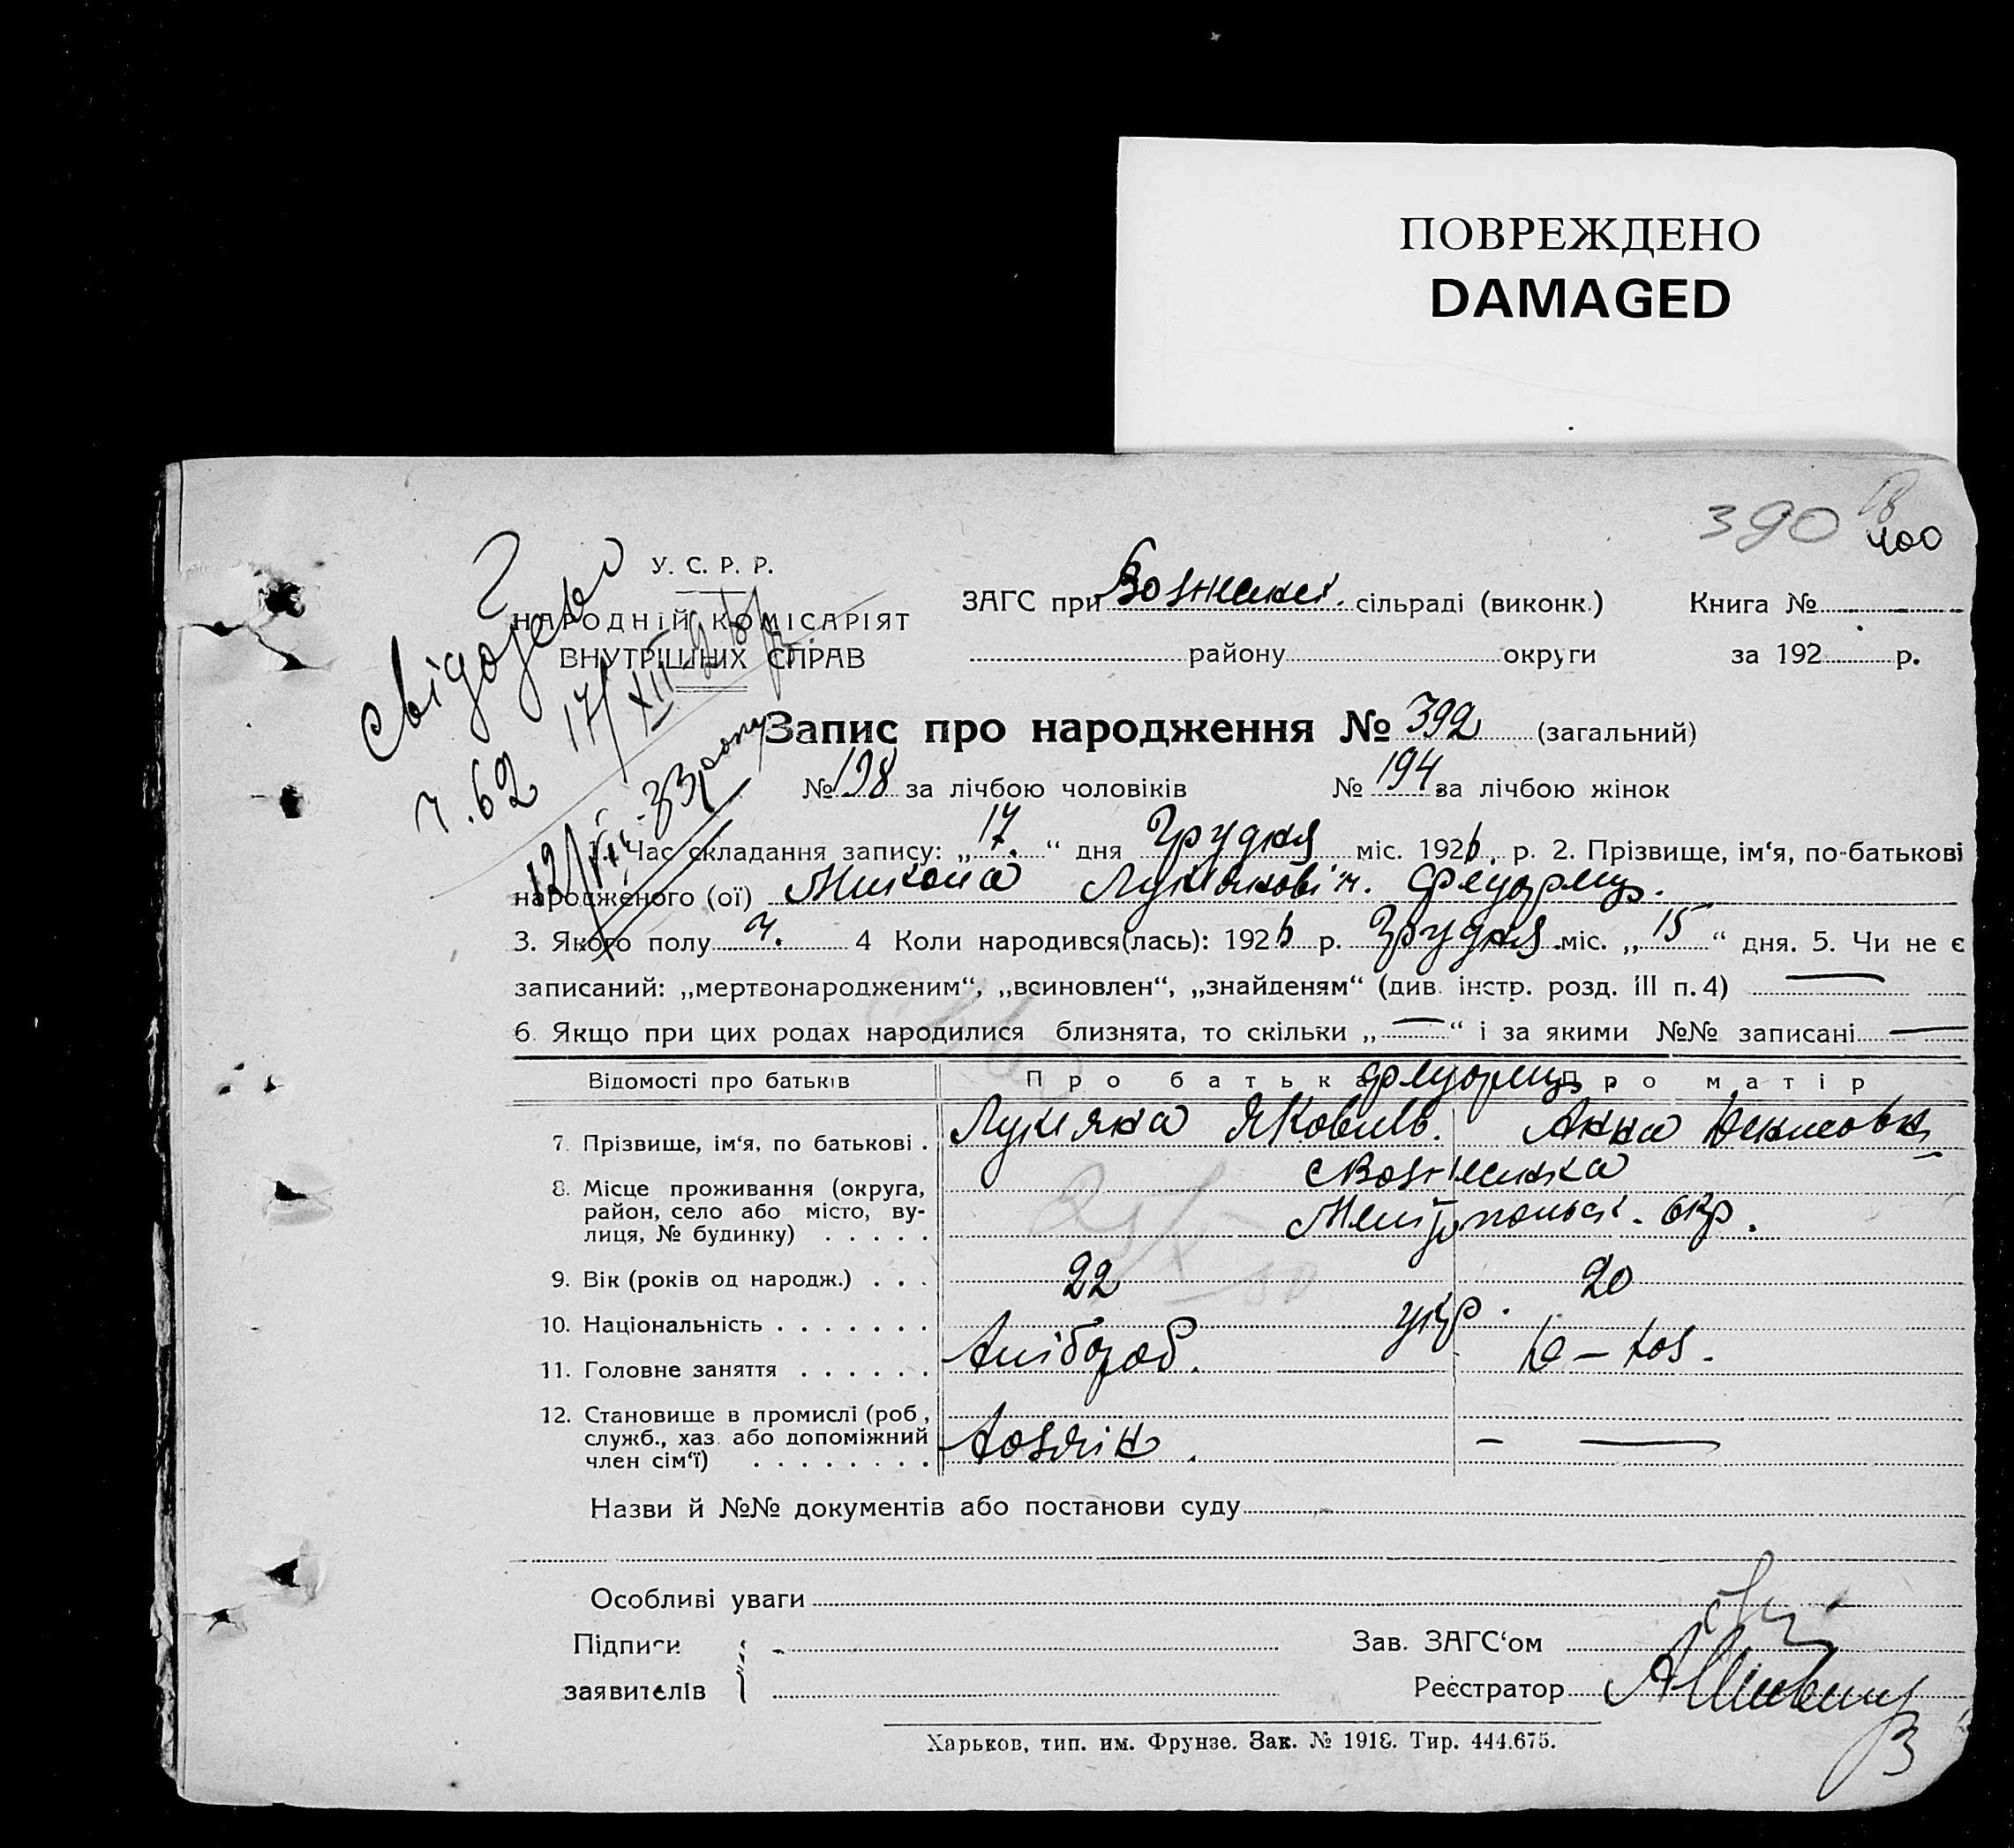 ПОВРЕЖДЕНО
DAMAGED
390
400
У. С. Р. Р.
НАРОДНІЙ КОМІСАРІЯТ
ВНУТРІШНІХ СПРАВ
ЗАГС при Вознесенск. сільраді (виконк.) Книга №
району округи за 192 р.
17/XII
ч. 62
Запис про народження № 392 (загальний)
№ 198 за лічбою чоловіків № 194 за лічбою жінок
1. Час складання запису: „17.“ дня Грудня міс. 1926. р. 2. Прізвище, ім‘я, по-батькові
народженого (ої) Микола
3. Якого полу ч. 4 Коли народився(лась): 1926 р. Грудня міс. „15“ дня. 5. Чи не є
записаний: „мертвонародженим“, „всиновлен“, „знайденям“ (див. інстр. розд. III п. 4) —
6. Якщо при цих родах народилися близнята, то скільки „—“ і за якими №№ записані —
Відомості про батьків Про батька Про матір
7. Прізвище, ім‘я, по батькові . Лукяна Яковлев. Анна
8. Місце проживання (округа, район, село або місто, вулиця, № будинку) . . . . .
Мелітопольск. окр.
9. Вік (років од народж.) . . . 22 20
10. Національність . . . . . . . укр.
11. Головне заняття . . . . . . хлібороб.
12. Становище в промислі (роб., служб., хаз. або допоміжний член сім‘ї) . . . . . . . . хозяін. — —
Назви й №№ документів або постанови суду
Особливі уваги
Підписи
заявителів
Зав. ЗАГС‘ом
Реєстратор
Харьков, тип. им. Фрунзе. Зак. № 1918. Тир. 444.675.